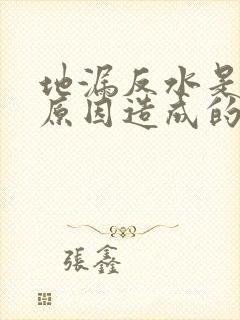 地漏反水是
原因造成的
張鑫